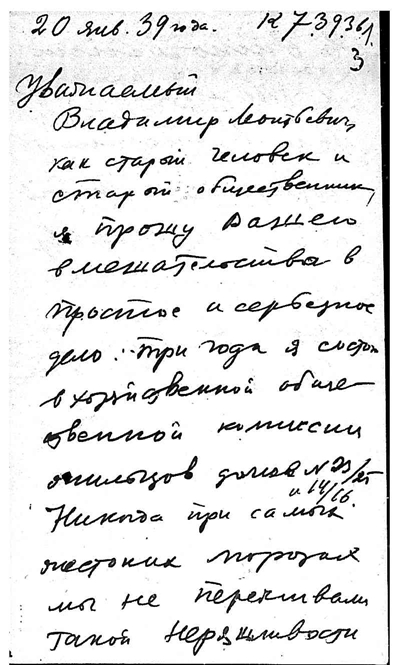 20 янв. 39 года. К 7.3936/1.
3
Уважаемый
Владимир Леонтьевич,
как старый человек и
старый общественник,
я прошу Вашего
вмешательства в
простое и серьезное
дело. Три года я состою
в хозяйственной обще-
ственной комиссии
жильцов домов № 23/25
и 14/16
Никогда при самых
жестоких морозах
мы не переживали
такой неряшливости